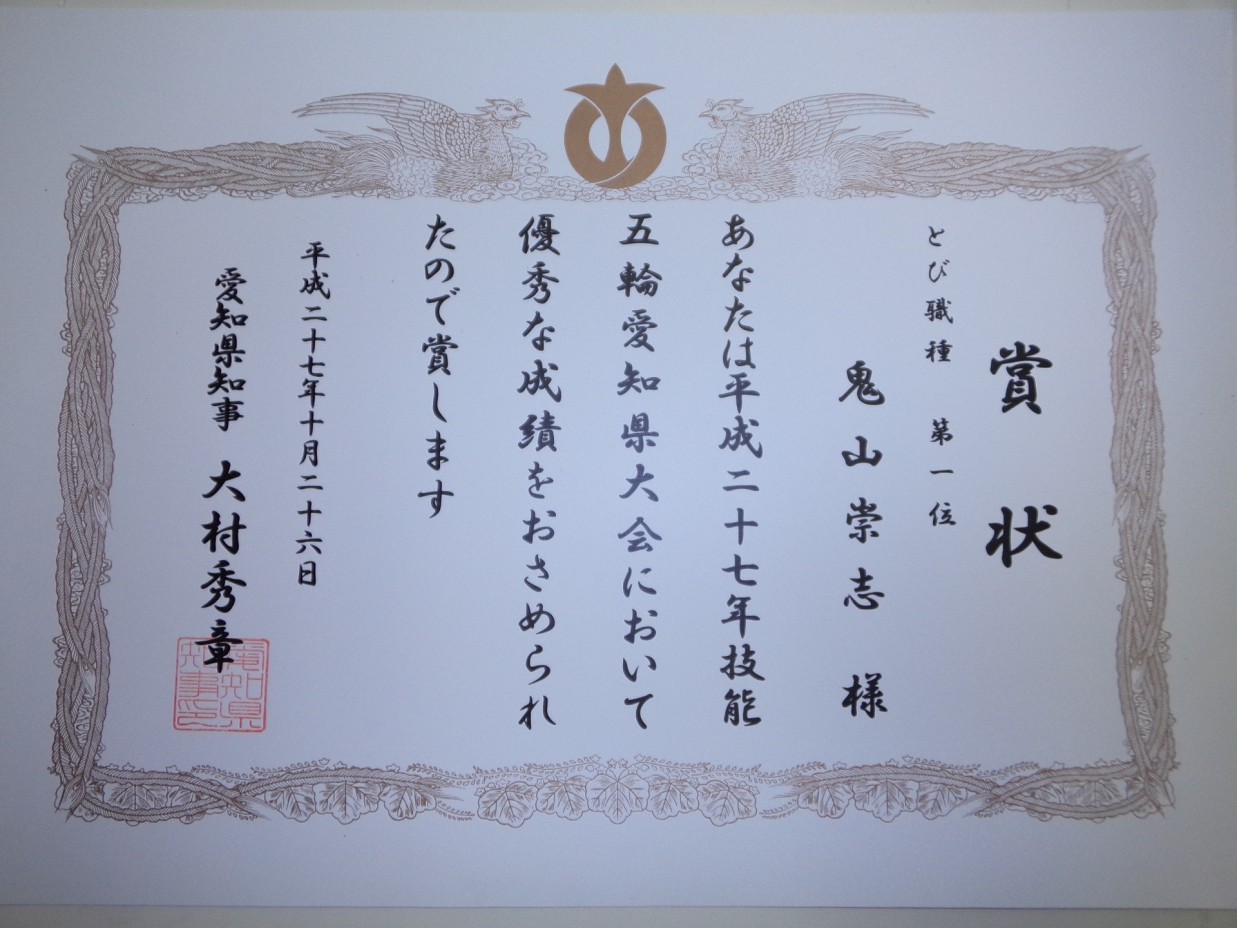 賞状
とび職種 第一位
鬼山崇志 様
あなたは平成二十七年技能
五輪愛知県大会において
優秀な成績をおさめられ
たので賞します
平成二十七年十月二十六日
愛知県知事 大村秀章
愛知県
知事印